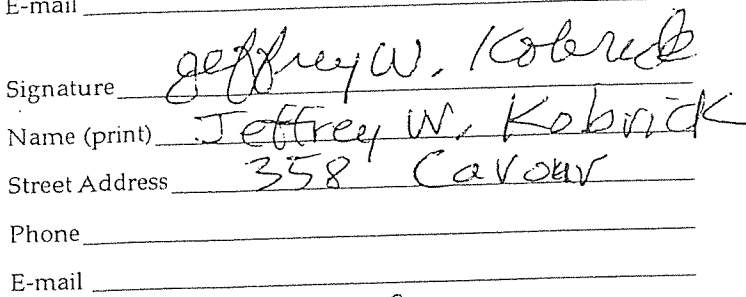 E-mail
Signature Jeffrey W. Kobrick
Name (print) Jeffrey W. Kobrick
Street Address 358 Cavour
Phone
E-mail